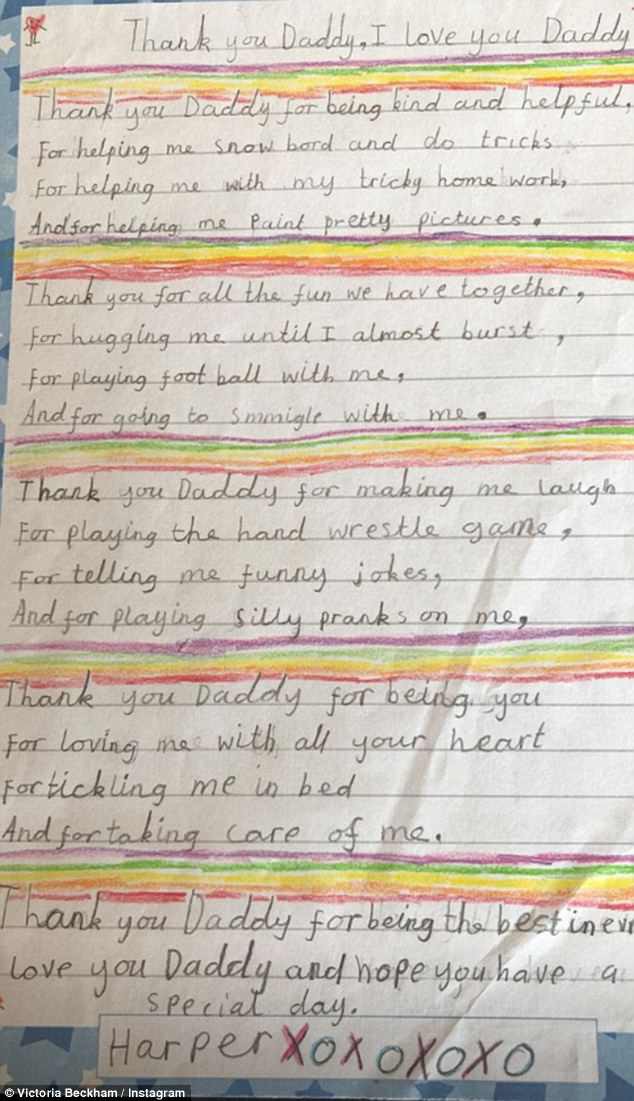 Thank you Daddy, I love you Daddy
Thank you Daddy for being kind and helpful,
For helping me snow bord and do tricks
For helping me with my tricky home work,
And for helping me Paint pretty pictures.
Thank you for all the fun we have together,
For hugging me until I almost burst ,
For playing foot ball with me,
And for going to Smmigle with me.
Thank you Daddy for making me laugh
For playing the hand wrestle game,
For telling me funny jokes,
And for playing silly pranks on me,
Thank you Daddy for being you
For loving me with all your heart
For tickling me in bed
And for taking care of me.
Thank you Daddy for being the best in
love you Daddy and hope you have a
special day.
Harper XOXOXOXO
© Victoria Beckham / Instagram